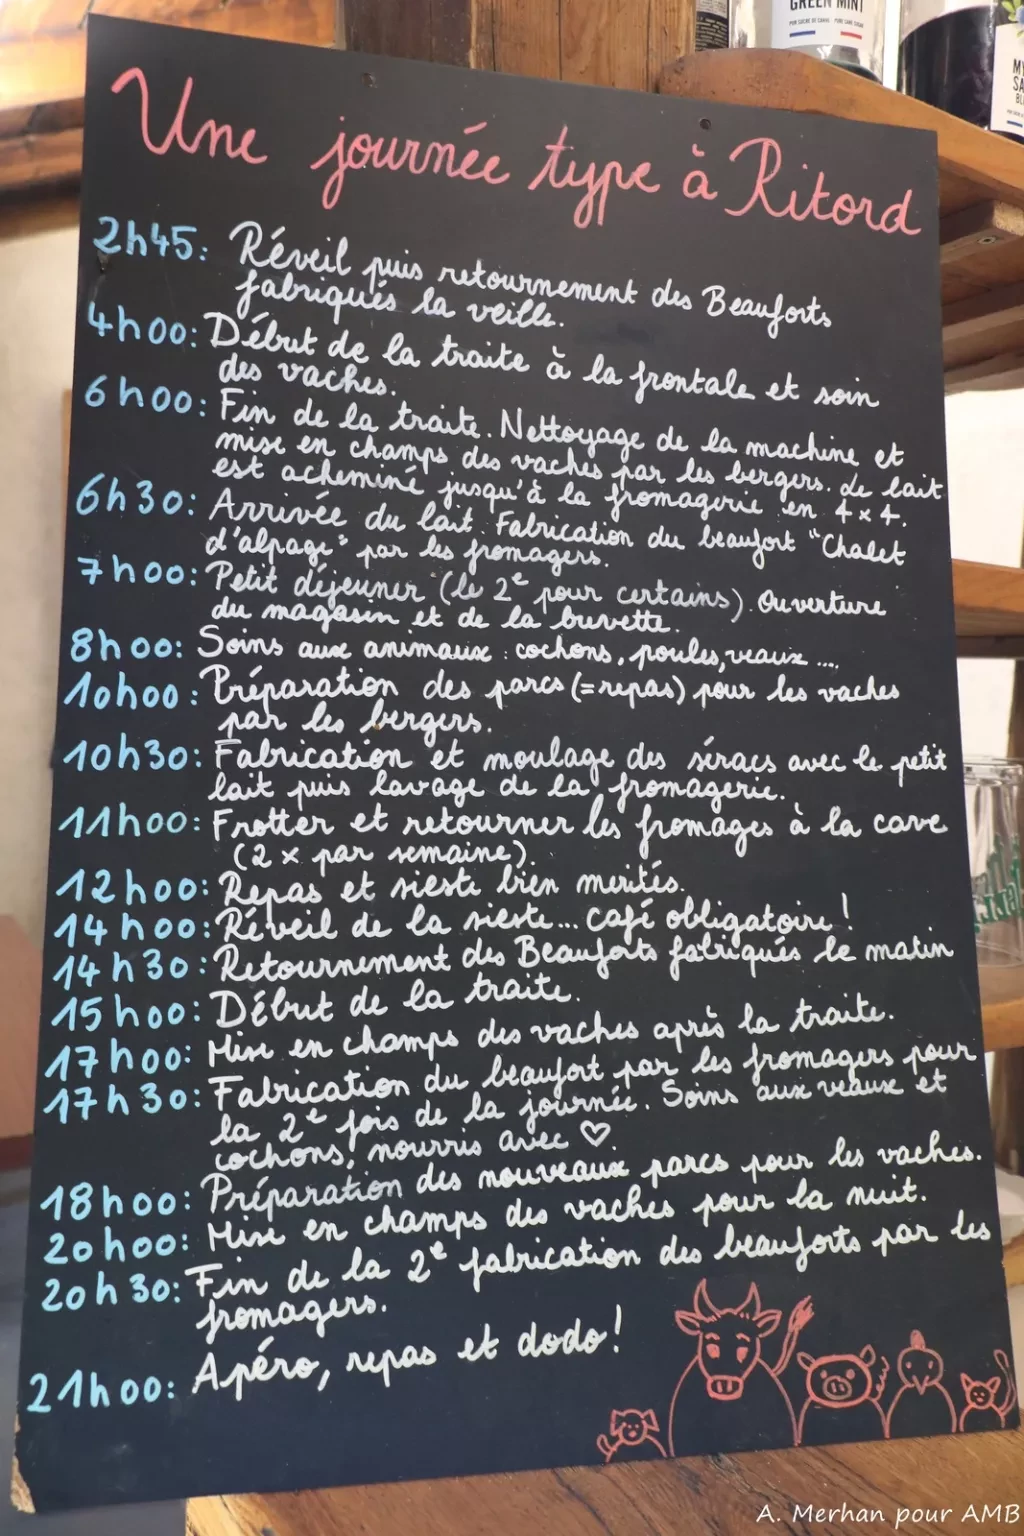 GREEN MINT
PUR SUCRE DE CANNE - PURE CANE SUGAR
Une journée type à Ritord
2h45: Réveil puis retournement des Beauforts
fabriqués la veille.
4h00: Début de la traite à la frontale et soin
des vaches.
6h00: Fin de la traite. Nettoyage de la machine et
mise en champs des vaches par les bergers. Le lait
est acheminé jusqu'à la fromagerie en 4x4.
6h30: Arrivée du lait. Fabrication du beaufort "Chalet
d'alpage" par les fromagers.
7h00: Petit déjeuner (le 2e pour certains). Ouverture
du magasin et de la buvette.
8h00: Soins aux animaux : cochons, poules, veaux ....
10h00: Préparation des parcs (=repas) pour les vaches
par les bergers.
10h30: Fabrication et moulage des séracs avec le petit
lait puis lavage de la fromagerie.
11h00: Frotter et retourner les fromages à la cave
(2 x par semaine).
12h00: Repas et sieste bien merités.
14h00: Réveil de la sieste... café obligatoire!
14h30: Retournement des Beauforts fabriqués le matin
15h00: Début de la traite.
17h00: Mise en champs des vaches après la traite.
17h30: Fabrication du beaufort par les fromagers pour
la 2e fois de la journée. Soins aux veaux et
cochons, nourris avec ♡.
18h00: Préparation des nouveaux parcs pour les vaches.
20h00: Mise en champs des vaches pour la nuit.
20h30: Fin de la 2e fabrication des beauforts par les
fromagers.
21h00: Apéro, repas et dodo!
A. Merhan pour AMB